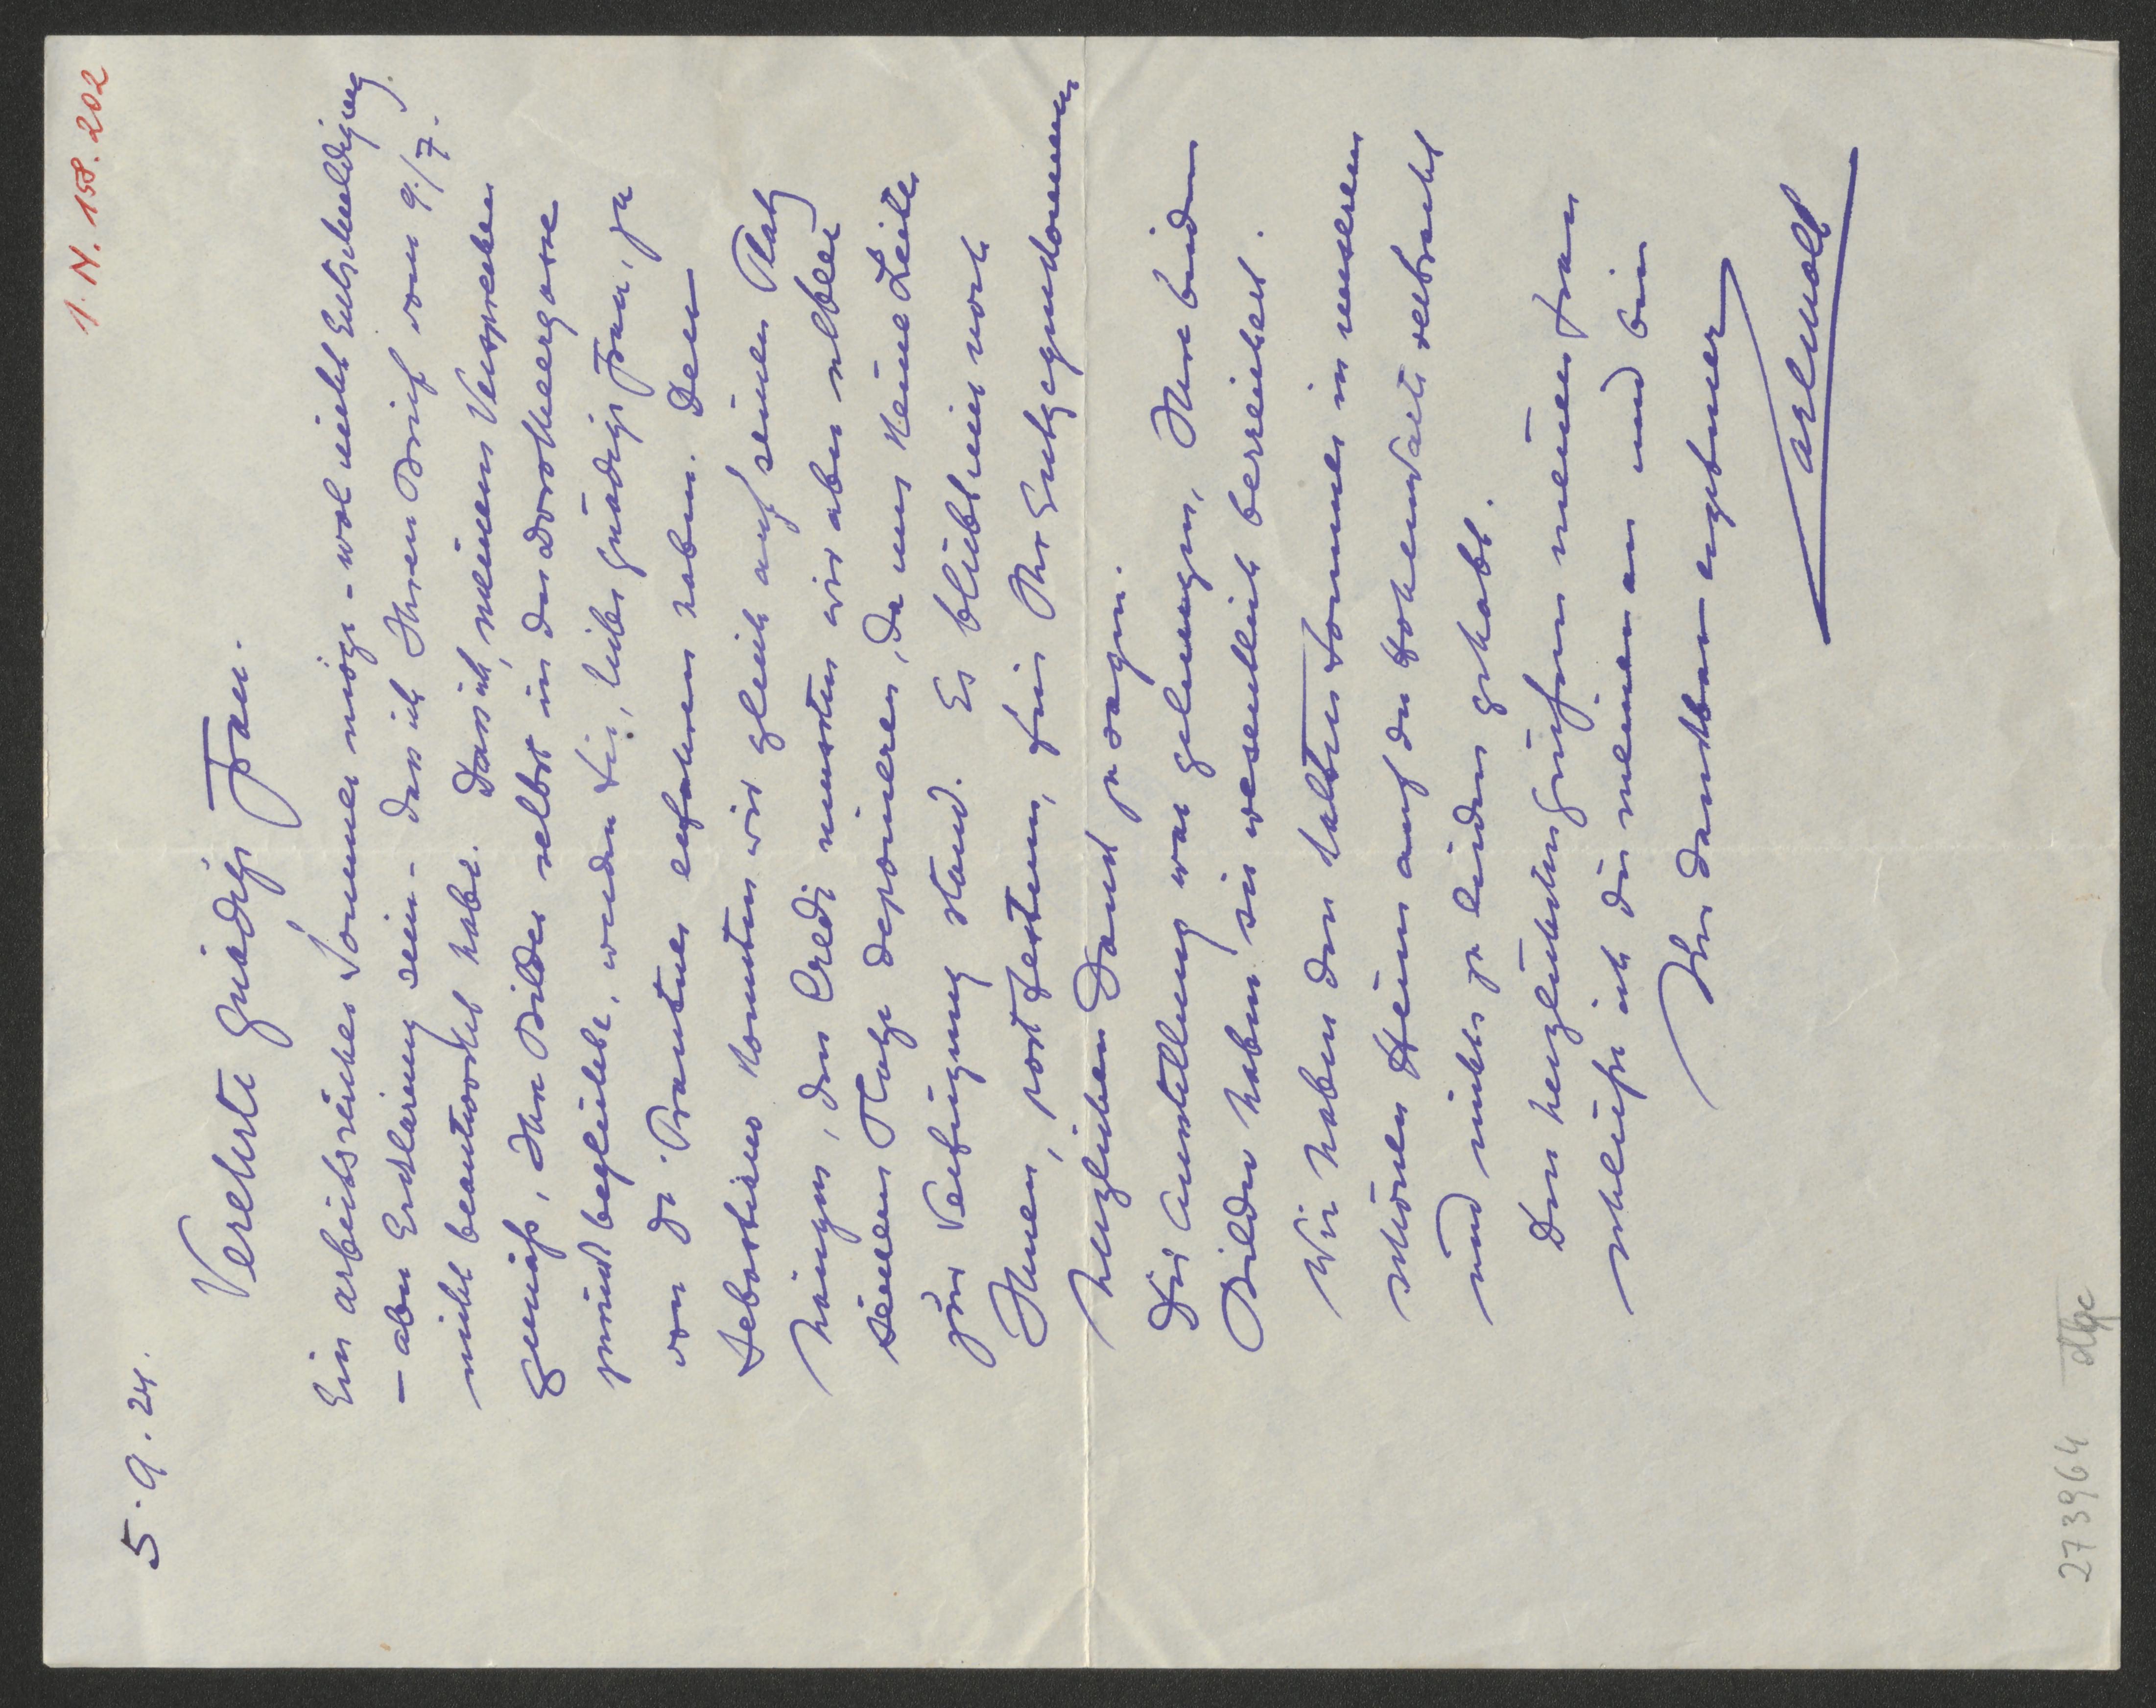 I. N. 158.202
5. 9. 24.
Verehrte gnädige Frau.
Ein arbeitsreicher Sommer möge - wol nicht Entschuldigung
- aber Erklärung sein - dass ich Ihren Brief vom 9./7.
nicht beantwortet habe. Dass ich, meinem Versprechen
gemäß, Ihre Bilder selbst in der Dorotheergasse
zurückbegleitete, werden Sie, liebe gnädige Frau, ja
von Dr. erfahren haben. Den
Sebastiano konnten wir gleich auf seinen Platz
hängen, den Credi mussten wir aber neben
seinem Platze deponieren, da uns keine Leiter
zur Verfügung stand. Es bliebt mir noch
Ihnen, post festum, für Ihr Entgegenkommen
herzlichen Dank zu sagen.
Die Ausstellung war gelungen, Ihre beiden
Bilder haben sie wesentlich bereichert.
Wir haben den kalten Sommer in unserem
schönen Heim auf der Hohenwarte verbracht
und nichts zu leiden gehabt.
Den herzlichsten Grüßen meiner Frau
schließe ich die meinen an und bin
Ihr dankbar ergebener
273964